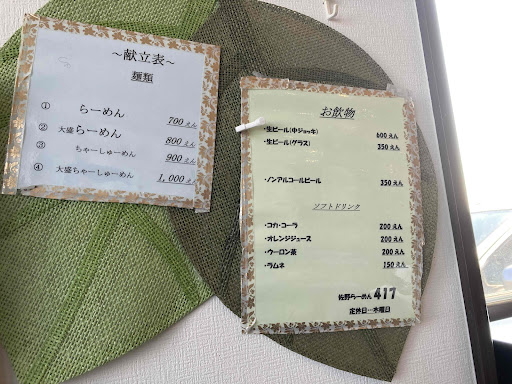 ～献立表～
麺類
① らーめん 700えん
② 大盛らーめん 800えん
③ ちゃーしゅーめん 900えん
④ 大盛ちゃーしゅーめん 1,000えん
お飲物
・生ビール(中ジョッキ) 600えん
・生ビール(グラス) 350えん
・ノンアルコールビール 350えん
ソフトドリンク
・コカ・コーラ 200えん
・オレンジジュース 200えん
・ウーロン茶 200えん
・ラムネ 150えん
佐野らーめん 417
定休日…水曜日